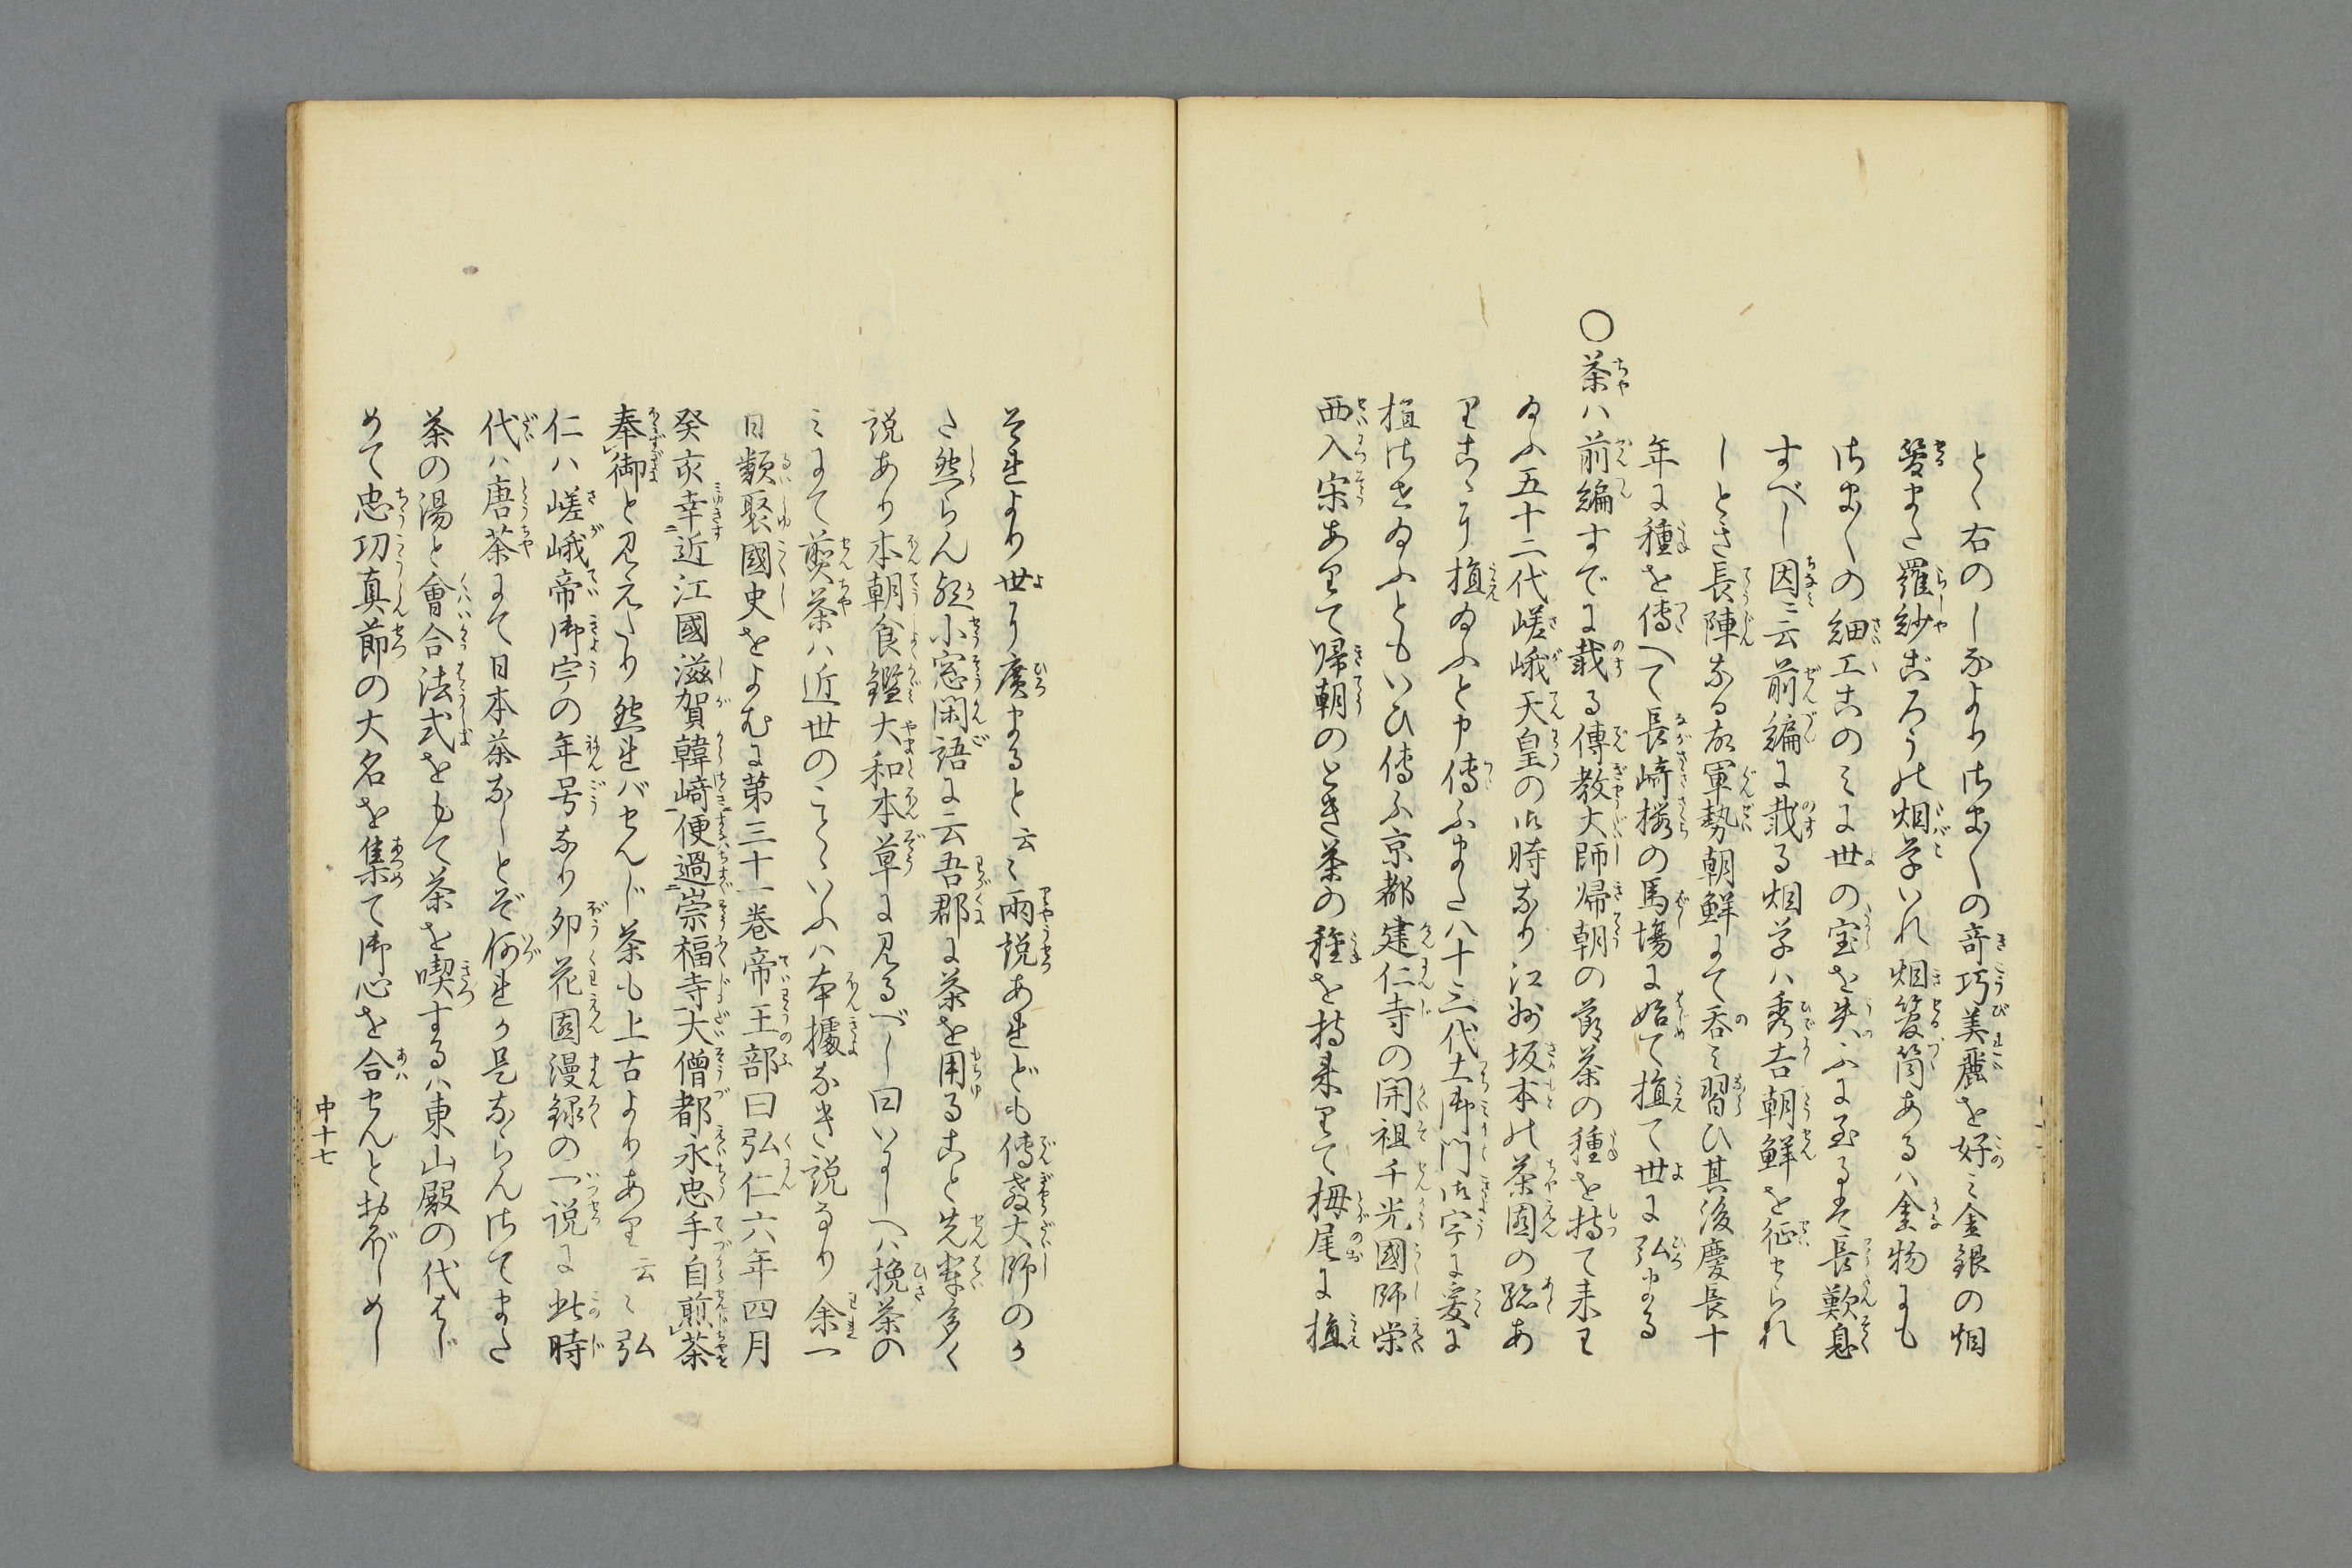 とく右のしなよりさま〴〵の奇巧美麗を好ミ金銀の烟
管また羅紗ごろうの烟草いれ烟管筒あるハ金物にも
さま〴〵の細工このミに世の宝を失ふに至るを長歎息
すべし因ミ云前編に載る烟草ハ秀吉朝鮮を征せられ
しとき長陣なる故軍勢朝鮮にて呑ミ習ひ其後慶長十
年に種を傳へて長﨑桜の馬場に始て植て世に弘まる
〇茶ハ前編すでに載る傳教大師帰朝の節茶の種を持て来り
給ふ五十二代嵯峨天皇の御時なり江州坂本の茶園の跡あ
りこゝに植給ふと申傳ふまた八十三代土御門御宇に妾に
植させ給ふともいひ傳ふ京都建仁寺の開祖千光國師栄
西入宋ありて帰朝のとき茶の種を持来りて栂尾に植
それより世に廣まると云〻兩説あれども傳教大師のか
た然らん歟小窓閑語に云吾郡に茶を用ること先輩多く
説あり本朝食鑑大和本草に見るべし曰いにしへハ挽茶の
ミにて煎茶ハ近世のことゝいふハ本據なき説なり余一
日類聚國史をよむに第三十一巻帝王部曰弘仁六年四月
癸亥幸近江國滋賀韓﨑便過崇福寺大僧都永忠手自煎茶
奉御と見えたり然れバせんじ茶も上古よりあり云〻弘
仁ハ嵯峨帝御宇の年号なり夘花園漫録の一説に此時
代ハ唐茶にて日本茶なしとぞ何れか是ならんさてまた
茶の湯と會合法式をもて茶を喫するハ東山殿の代はじ
めて忠功真節の大名を集て御心を合せんとおぼしめし
中十七